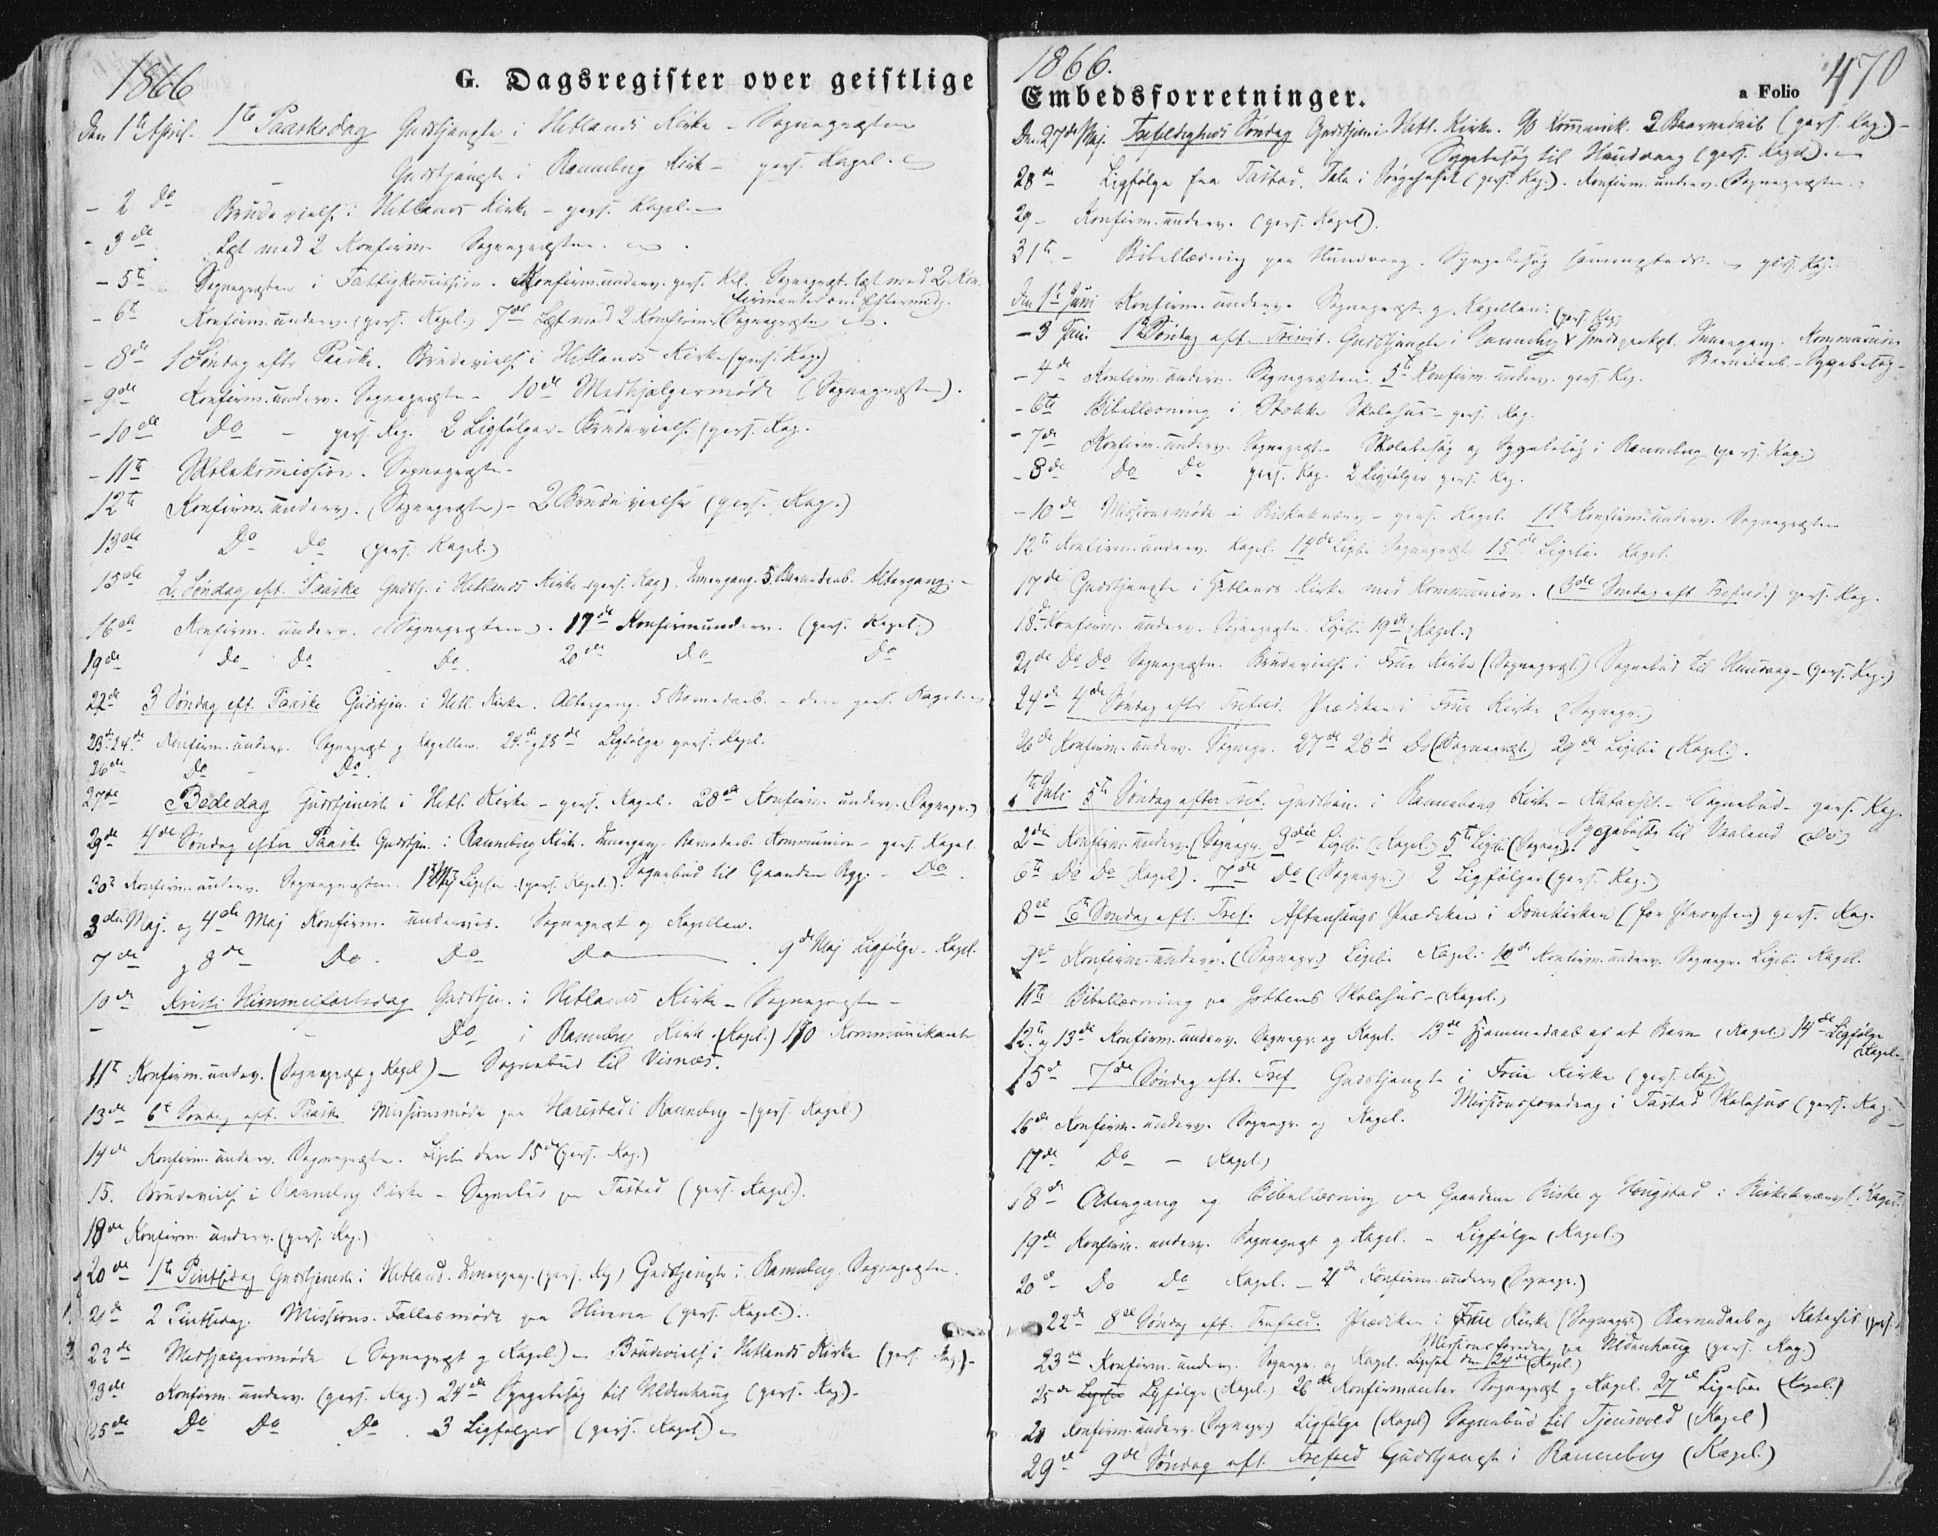 1866
G. Dagsregister over geistlige
Den 1te April. 1te Paaskedag Gudstjeneste i Hetlands Kirke - Sognepræsten
Gudstjeneste i Ranneberg Kirke - pers. Kapel.
- 2 Do Brudevielse i Hetlands Kirke - pers. Kapel.
- 3die Læst med 2 Konfirm. Sognepræsten.
- 5te Sognepræsten i Fattigkomission. Konfirm.underv. pers. Kap. Sognepræst. læst med 2 Kon
firmanter om Eftermidg.
- 6te Konfirm.underv. (pers. Kapel.) 7de Læst med 2 Konfirm. (Sognepræsten)
- 8de 1 Søndag efter Paaske. Brudevielse i Hetlands Kirke (pers. Kap.)
- 9de Konfirm.underv. Sognepræsten - 10de Medhjælpermøde (Sognepræsten).
- 10de Do - pers. Kap. 2 Ligfølger - Brudevielse (pers. Kap.
- 11te Skolekomission. Sognepræsten -
12te Konfirm.underv. (Sognepræsten) - 2 Brudevielser (pers. Kap.)
13de Do Do (pers. Kapel.)
15de 2. Søndag eft. Paaske Gudstj. i Hetlands Kirke (pers. Kap.) 5 Barnedaab. Altergang. -
16de Konfirm. underv. (Sognepræsten). 17de Konfirmunderv. (pers. Kapel.)
19de Do Do Do 20de Do Do
22de 3 Søndag eft. Paaske Gudstjen. i Hetl. Kirke. Altergang. 5 Barnedaab. - den pers. Kapel.
23de 24de Konfirm.underv. Sognepræst og Kapellan. 24de og 25de Ligfølge pers. Kapel.
26de Do - Do.
27de Bededag Gudstjeneste i Hetl. Kirke - pers. Kapel. 28de Konfirm. underv. (Sognepr.)
29de 4de Søndag efter Paaske Gudstjen. i Ranneberg Kirke. Barnedaab. Kommunion - pers. Kapel.
30te Konfirm.underv. Sognepræsten. 1te Maj (pers. Kapel.). Sognebud til Gaanden Byg. - Do.
3die Maj. og 4de Maj Konfirm. undervis. Sognepræst og Kapellan.
7de og 8de Do. Do Do . 9de Maj Ligfølge - Kapel.
10de Kristi Himmelfartsdag Gudstjen. i Hetlands Kirke - Sognepræsten -
- - - Do i Ranneberg Kirke (Kapel.) 110 Kommunikanter
11te Konfirm.underv. (Sognepræst og Kapel) - Sognebud til Visnæs.
13de 6te Søndag eft. Paaske Missionsmøde paa Harestad i Ranneberg - (pers. Kapel)
14de Konfirm.underv. Sognepræsten. den 15de (pers. Kap.)
15. Brudevielse i Ranneberg Kirke - Sognebud paa Tastad (pers. Kapel.).
18de Konfirm. underv. (pers. Kap.)
20de 1te Pintsedag Gudstjeneste i Hetland. (pers. Kap.) Gudstjeneste i Ranneberg. Sognepræsten.
21de 2 Pintsedag. Missions-Fællesmøde paa Hinna (pers. Kapel.).
22de Medhjælpermøde (Sognepræst og Kapel) - Brudevielse i Hetlands Kirke (pers. Kap.) -
23de Konfirm.underv. (pers. Kap.) 24de Sygebesøg til Uldenhaug (pers. Kap.) -
25de Do Do Do . 3 Ligfølger (pers. Kapel.)
1866.
Embedsforretninger.
a Folio 470
Den 27de Maj. Trefoldigheds Søndag Gudstjen. i Hetl. Kirke. 90 Komunik. 2 Barnedaab (pers. Kap.) -
Sygebesøg til Hundvaag (pers. Kapel).
28de Ligfølge fra Tastad. Tale i Sørgehuset (pers. Kap.). Konfirm.underv. (Sognepræsten
29 - Konfirm.underv. (pers. Kapel).
31te - Bibellæsning paa Hundvaag. Sygebesøg sammesteds. pers. Kap.
Den 1te Juni Konfirm.underv. Sognepræst. og Kapellan.
- 3 Juni 1te Søndag eft. Trinit. Gudstjeneste i Ranneberg (pers. Kap.) Kommunion
Barnedaab - Sygebesøg -
- 4de Konfirm.underv. Sognepræsten. 5te Konfirm.underv. pers. Kap.
- 6te Bibellæsning i Stokke Skolehus - pers. Kap.
- 7de Konfirm.underv. Sognepræst. - Skolebesøg og Sygebesøg i Ranneberg (pers. Kap.)
- 8de Do Do pers. Kap. 2 Ligfølger pers. Kap.
- 10de Missionsmøde i Riskekværv - pers. Kapel. 11te Konfirm.underv. Sognepræsten
12te Konfirm.underv. Kapel. 14de Sognepræst 15de Kapel.
17de Gudstjeneste i Hetlands Kirke med Kommunion. (3de Søndag eft. Trefold.) pers. Kap.
18de Konfirm. underv. Sognepræsten. 19de (Kapel.)
21de Do Do Sognepræsten. Brudevielse i Frue Kirke (Sognepræst.) Sognebud til Hundvaag - (pers. Kap.)
24de 4de Søndag efter Trefold. Prædiken i Frue Kirke (Sognepr.)
26de Konfirm.underv. Sognepr. 27de 28de Do (Sognepræst) 29de (Kapel).
1te Juli 5te Søndag efter Tref. Gudstjen. i Ranneberg Kirke - Katechis. - Sognebud - pers. Kap.
Sygebesøg til Vaaland (Do)
2den Konfirm.underv. (Sognepr. 3die (Kapel.) 5te (Sognepr.)
6te Do Do (Kapel). 7de Do (Sognepr.) 2 Ligfølger (pers. Kap.)
8de 6te Søndag eft. Tref. Aftensangs Prædiken i Domkirken (for Provsten) pers. Kap.
9de Konfirm.underv. (Sognepr.) Kapel. 10de Konfirm.underv. Sognepr. Kapel.
11te Bibellæsning paa Skolehus - (Kapel.)
12te og 13de Konfirm.underv. Sognepr. og Kapel. 13de Hjemmedaab af et Barn (Kapel.) 14de Ligfølge
(Kapel.
15de 7de Søndag eft. Tref Gudstjeneste i Frue Kirke (pers. Kap.)
Missionsforedrag i Tastad Skolehus (pers. Kap.)
16de Konfirm.underv. Sognepr. og Kapel.
17de Do - (Kapel.)
18de og Bibellæsning paa Gaardene Riske og Haugstad i Riskekværv. Kapel.
19de Konfirm. underv. Sognepræst og Kapel. - Ligfølge (Kapel.)
20de Do Do Kapel. - 21de Konfirm.underv. (Sognepr.)
22de 8de Søndag eft. Trefold. Prædiken i Frue Kirke (Sognepr.) Barnedaab og Katechis (pers.
Missionsforedrag paa Uldenhaug (pers. Kap.)
23de Konfirm.underv. Sognepr. og Kapel. den 24de (Kapel.)
25de Ligfølge (Kapel.) 26de Konfirmanter Sognepræst og Kapel. 27de (Kapel.)
28 Konfirm.underv. (Sognepr.) Ligfølge (Kapel) Sognebud til Tjensvold (Kapel)
29de 9de Søndag eft. Trefold Gudstjeneste i Ranneberg (Kapel.)